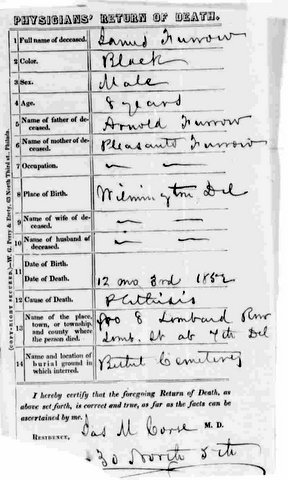 PHYSICIANS' RETURN OF DEATH.
1 Full name of deceased. James Furrow
2 Color. Black
3 Sex. Male
4 Age. 8 years
5 Name of father of deceased. Arnold Furrow
6 Name of mother of deceased. Pleasant Furrow
7 Occupation. — —
8 Place of Birth. Wilmington Del
9 Name of wife of deceased. — —
10 Name of husband of deceased. — —
11 Date of Birth.
Date of Death. 12 mo 3rd 1852
12 Cause of Death. Phthisis
13 Name of the place, town, or township, and county where the person died. 8 Lombard Row
Lomb. St ab 7th Del
14 Name and location of burial ground in which interred. Bethel Cemetery
I hereby certify that the foregoing Return of Death, as
above set forth, is correct and true, as far as the facts can be
ascertained by me.
Jas M Corse M. D.
RESIDENCY,
30 North 5th
(COPY-RIGHT SECURED.)—W. G. Perry & Erety, 63 North Third st., Philada.